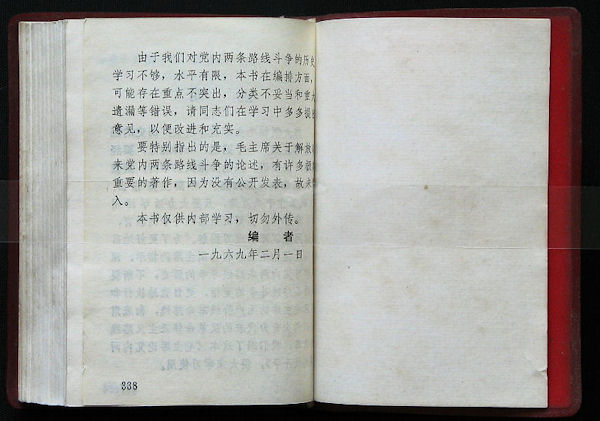 由于我们对党内两条路线斗争的历史
学习不够，水平有限，本书在编排方面，
可能存在重点不突出，分类不妥当和重大
遗漏等错误，请同志们在学习中多多提出
意见，以便改进和充实。
要特别指出的是，毛主席关于解放
来党内两条路线斗争的论述，有许多
重要的著作，因为没有公开发表，故未
入。
本书仅供内部学习，切勿外传。
编 者
一九六九年二月一日
338